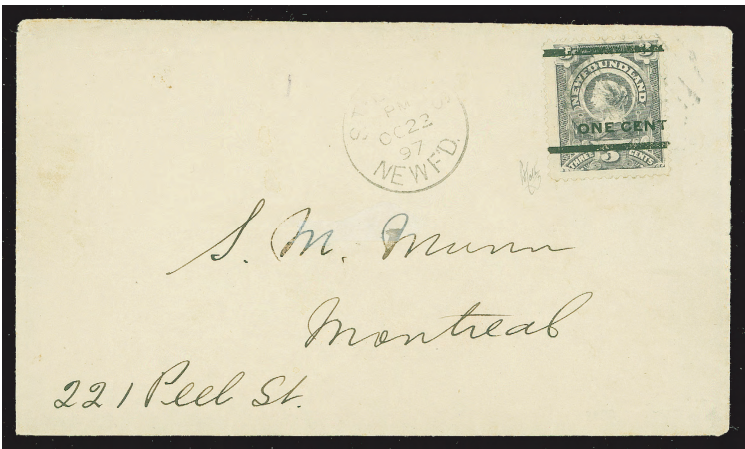 NEWFOUNDLAND
ONE CENT
THREE 3 CENTS
PM
OC 22
97
NEWF'D.
S. M. Munn
Montreal
221 Peel St.